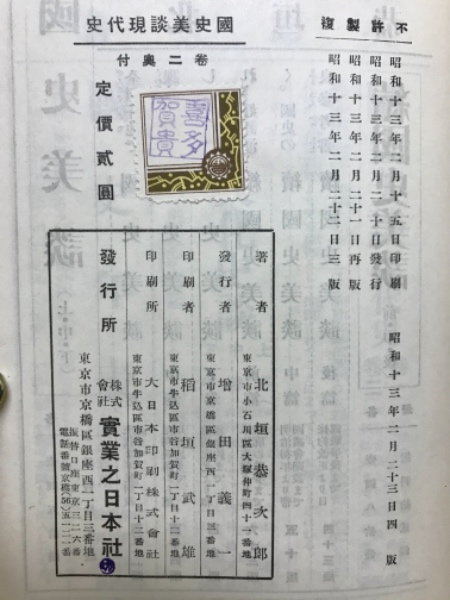 國史美談現代史
卷二奧付
定價貳圓
喜多
賀貴
不許複製
昭和十三年二月十五日印刷
昭和十三年二月二十日發行
昭和十三年二月二十一日再版
昭和十三年二月二十二日三版
昭和十三年二月二十三日四版
著者 北垣恭次郎
東京市小石川區大塚仲町四十一番地
發行者 增田義一
東京市京橋區銀座西一丁目三番地
印刷者 稻垣武雄
東京市牛込區市谷加賀町一丁目十二番地
印刷所 大日本印刷株式會社
東京市牛込區市谷加賀町一丁目十二番地
發行所 株式會社 實業之日本社
東京市京橋區銀座西一丁目三番地
振替口座東京三二六番
國史美談